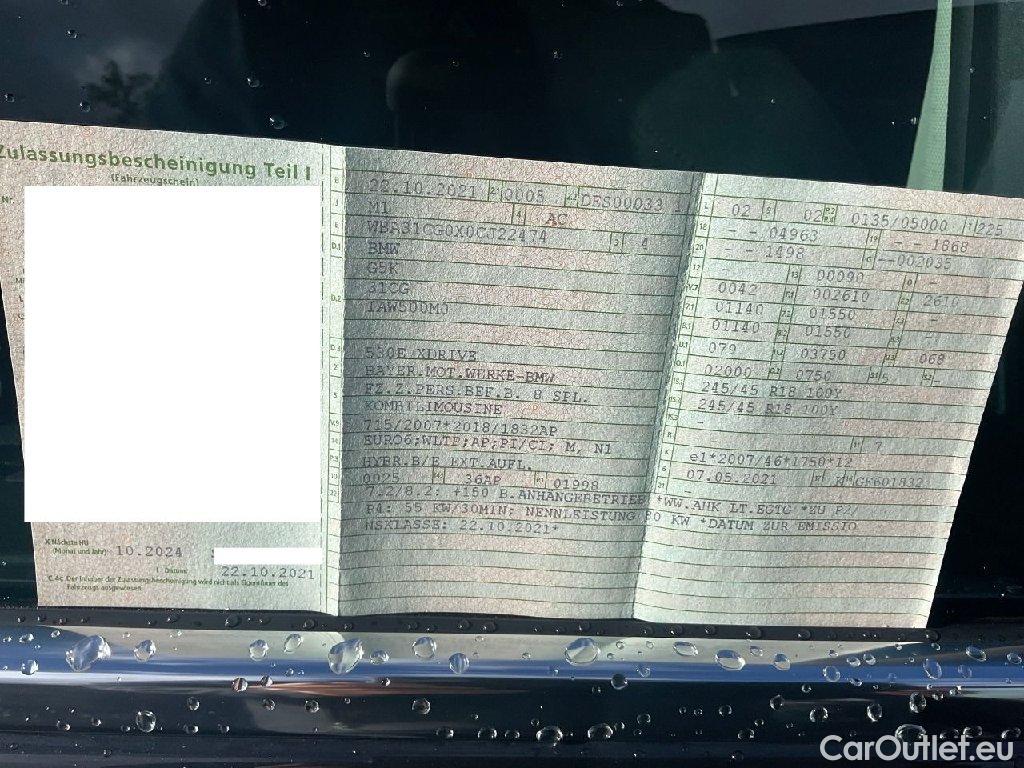 Zulassungsbescheinigung Teil I
(Fahrzeugschein)
Nr.
X Nächste HU
(Monat und Jahr) 10.2024
I Datum: 22.10.2021
C.4c Der Inhaber der Zulassungsbescheinigung wird nicht als Eigentümer des
Fahrzeugs ausgewiesen.
22.10.2021 0005
M1 4 AC
3 4
D.1 BMW
G5K
31CG
D.2 IAW500M0
D.3 530E XDRIVE
2 BAYER.MOT.WERKE-BMW
5 FZ.Z.PERS.BEF.B. 8 SPL.
KOMBILIMOUSINE
V.9 715/2007*2018/1832AP
14 EURO6;WLTP;AP;PI/CI; M, N1
P.3 HYBR.B/E EXT.AUFL.
10 0025 36AP P.1 01998
22 7.2/8.2: +150 B.ANHÄNGEBETRIEB *WW.AHK LT.EGTG *ZU P.2/
P4: 55 KW/30MIN; NENNLEISTUNG 80 KW *DATUM ZUR EMISSIO
NSKLASSE: 22.10.2021*
L 02 9 02 0135/05000 T 225
18 - - 04963 19 - - 1868
20 - - 1498 G --002035
17 - 13 00090 Q -
V.7 0042 F.1 002610 F.2 2610
7.1 01140 7.2 01550 7.3 -
8.1 01140 8.2 01550 8.3 -
U.1 079 U.2 03750 U.3 068
O.1 02000 O.2 0750 S.1 5 S.2 -
15.1 245/45 R18 100Y
15.2 245/45 R18 100Y
15.3 -
R 11 7
K e1*2007/46*1750*12
6 07.05.2021 17 K 16 GF601832
21 -
CarOutlet.eu